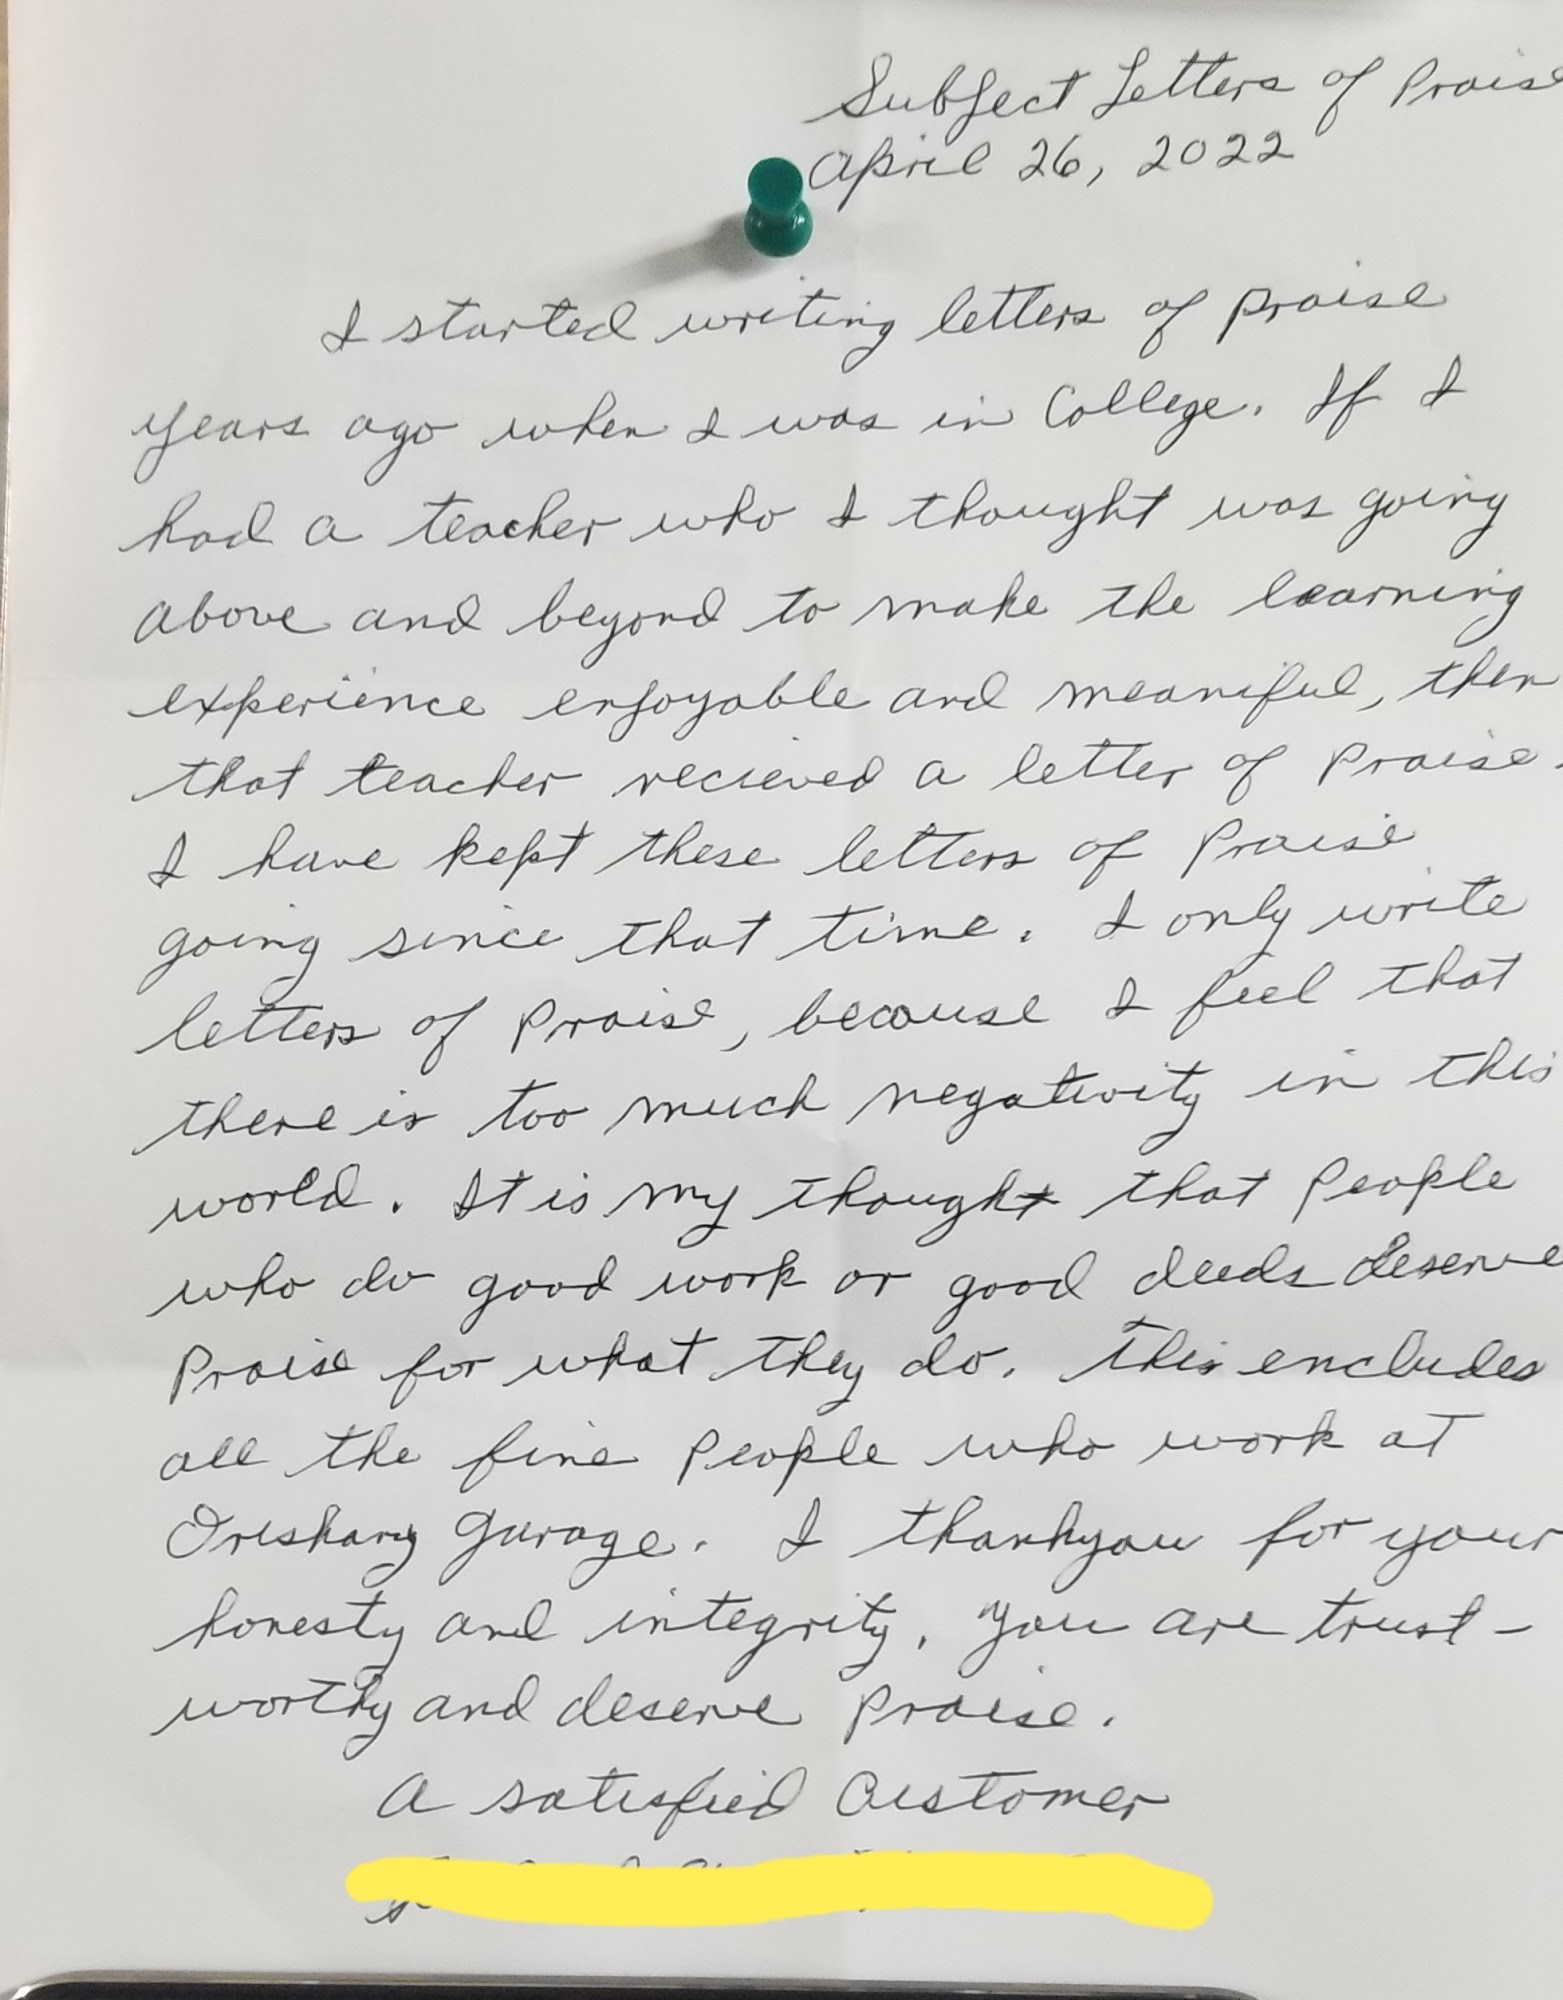 Subject Letters of Praise
April 26, 2022
I started writing letters of praise
years ago when I was in College. If I
had a teacher who I thought was going
above and beyond to make the learning
experience enjoyable and meaniful, then
that teacher recieved a letter of Praise.
I have kept these letters of Praise
going since that time. I only write
letters of Praise, because I feel that
there is too much negativity in this
world. It is my thought that People
who do good work or good deeds deserve
Praise for what they do. This encludes
all the fine People who work at
Oriskany Garage. I thankyou for your
honesty and integrity. You are trust-
worthy and deserve Praise.
A satisfied Customer